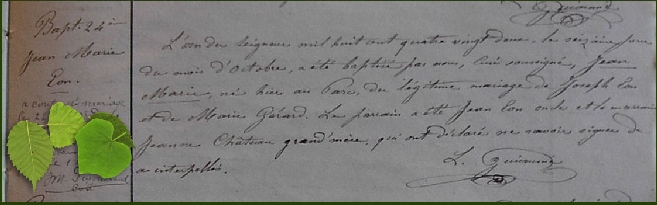 Bapt. 24
Jean Marie
Eon.
a contracté mariage
L'an du Seigneur mil huit cent quatre vingt deux, le seizième jour
du mois d'Octobre, a été baptisé par nous, Curé soussigné, Jean
Marie, né hier au Parc, du légitime mariage de Joseph Eon
et de Marie Gérard. Le parrain a été Jean Eon oncle et la marraine
Jeanne Château grand'mère, qui ont déclaré ne savoir signer de
ce interpellés.
L. Guimund